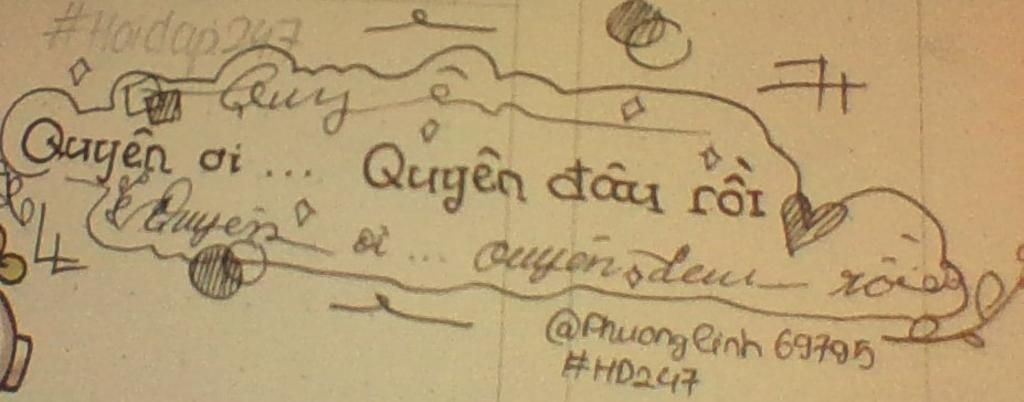 #Hoidap247
Quy
Quyên ơi ... Quyên đâu rồi
Quyên ơi ... Quyên đâu rồi
@Phuonglinh69795
#HD247